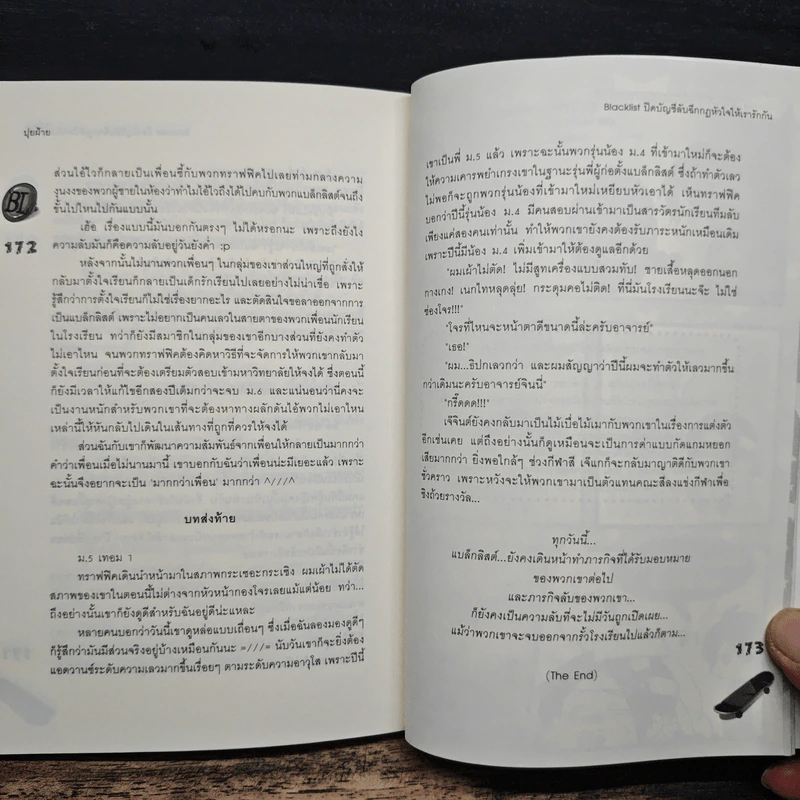 ปุยฝ้าย
ส่วนไอ้ใจก็กลายเป็นเพื่อนซี้กับพวกทราฟฟิคไปเลยท่ามกลางความ
งุนงงของพวกผู้ชายในห้องว่าทำไมไอ้ใจถึงได้ไปคบกับพวกแบล็กลิสต์จนถึง
ขั้นไปไหนไปกันแบบนั้น
เฮ้อ เรื่องแบบนี้มันบอกกันตรงๆ ไม่ได้หรอกนะ เพราะถึงยังไง
ความลับมันก็คือความลับอยู่วันยังค่ำ :p
หลังจากนั้นไม่นานพวกเพื่อนๆ ในกลุ่มของเขาส่วนใหญ่ที่ถูกสั่งให้
กลับมาตั้งใจเรียนก็กลายเป็นเด็กรักเรียนไปเลยอย่างไม่น่าเชื่อ เพราะ
รู้สึกว่าการตั้งใจเรียนก็ไม่ใช่เรื่องยากอะไร และตัดสินใจขอลาออกจากการ
เป็นแบล็กลิสต์ เพราะไม่อยากเป็นคนเลวในสายตาของพวกเพื่อนนักเรียน
ในโรงเรียน ทว่าก็ยังมีสมาชิกในกลุ่มของเขาอีกบางส่วนที่ยังคงทำตัว
ไม่เอาไหน จนพวกทราฟฟิคต้องคิดหาวิธีที่จะจัดการให้พวกเขากลับมา
ตั้งใจเรียนก่อนที่จะต้องเตรียมตัวสอบเข้ามหาวิทยาลัยให้จงได้ ซึ่งตอนนี้
ก็ยังมีเวลาให้แก้ไขอีกสองปีเต็มกว่าจะจบ ม.6 และแน่นอนว่านี่คงจะ
เป็นงานหนักสำหรับพวกเขาที่จะต้องหาทางผลักดันไอ้พวกไม่เอาไหน
เหล่านี้ให้หันกลับไปเดินในเส้นทางที่ถูกที่ควรให้จงได้
ส่วนฉันกับเขาก็พัฒนาความสัมพันธ์จากเพื่อนให้กลายเป็นมากกว่า
คำว่าเพื่อนเมื่อไม่นานมานี้ เขาบอกกับฉันว่าเพื่อนน่ะมีเยอะแล้ว เพราะ
ฉะนั้นจึงอยากจะเป็น 'มากกว่าเพื่อน' มากกว่า ^///^
บทส่งท้าย
ม.5 เทอม 1
ทราฟฟิคเดินนำหน้ามาในสภาพกระเซอะกระเซิง ผมเผ้าไม่ได้ตัด
สภาพของเขาในตอนนี้ไม่ต่างจากหัวหน้ากองโจรเลยแม้แต่น้อย ทว่า...
ถึงอย่างนั้นเขาก็ยังดูดีสำหรับฉันอยู่ดีน่ะแหละ
หลายคนบอกว่าวันนี้เขาดูหล่อแบบเถื่อนๆ ซึ่งเมื่อฉันลองมองดูดีๆ
ก็รู้สึกว่ามันมีส่วนจริงอยู่บ้างเหมือนกันนะ =///= นับวันเขาก็จะยิ่งต้อง
แอดวานซ์ระดับความเลวมากขึ้นเรื่อยๆ ตามระดับความอาวุโส เพราะปีนี้
BL
172
Blacklist ปิดบัญชีลับฉีกกฎหัวใจให้เรารักกัน
เขาเป็นพี่ ม.5 แล้ว เพราะฉะนั้นพวกรุ่นน้อง ม.4 ที่เข้ามาใหม่ก็จะต้อง
ให้ความเคารพยำเกรงเขาในฐานะรุ่นพี่ผู้ก่อตั้งแบล็กลิสต์ ซึ่งถ้าทำตัวเลว
ไม่พอก็จะถูกพวกรุ่นน้องที่เข้ามาใหม่เหยียบหัวเอาได้ เห็นทราฟฟิค
บอกว่าปีนี้รุ่นน้อง ม.4 มีคนสอบผ่านเข้ามาเป็นสารวัตรนักเรียนทีมลับ
เพียงแค่สองคนเท่านั้น ทำให้พวกเขายังคงต้องรับภาระหนักเหมือนเดิม
เพราะปีนี้มีน้อง ม.4 เพิ่มเข้ามาให้ต้องดูแลอีกด้วย
"ผมเผ้าไม่ตัด! ไม่มีสูทเครื่องแบบสวมทับ! ชายเสื้อหลุดออกนอก
กางเกง! เนกไทหลุดลุ่ย! กระดุมคอไม่ติด! ที่นี่มันโรงเรียนนะจ๊ะ ไม่ใช่
ซ่องโจร!!!"
"โจรที่ไหนจะหน้าตาดีขนาดนี้ล่ะครับอาจารย์"
"เธอ!"
"ผม...ธิปกเลวกว่า และผมสัญญาว่าปีนี้ผมจะทำตัวให้เลวมากขึ้น
กว่าเดิมนะครับอาจารย์จินนี่"
"กรี๊ดดด!!!"
เจ๊จินต์ยังคงกลับมาเป็นไม้เบื่อไม้เมากับพวกเขาในเรื่องการแต่งตัว
อีกเช่นเคย แต่ถึงอย่างนั้นก็ดูเหมือนจะเป็นการด่าแบบกัดแกมหยอก
เสียมากกว่า ยิ่งพอใกล้ๆ ช่วงกีฬาสี เจ๊แกก็จะกลับมาญาติดีกับพวกเขา
ชั่วคราว เพราะหวังจะให้พวกเขามาเป็นตัวแทนคณะสีลงแข่งกีฬาเพื่อ
ชิงถ้วยรางวัล...
ทุกวันนี้...
แบล็กลิสต์...ยังคงเดินหน้าทำภารกิจที่ได้รับมอบหมาย
ของพวกเขาต่อไป
และภารกิจลับของพวกเขา...
ก็ยังคงเป็นความลับที่จะไม่มีวันถูกเปิดเผย...
แม้ว่าพวกเขาจะจบออกจากรั้วโรงเรียนไปแล้วก็ตาม...
(The End)
173